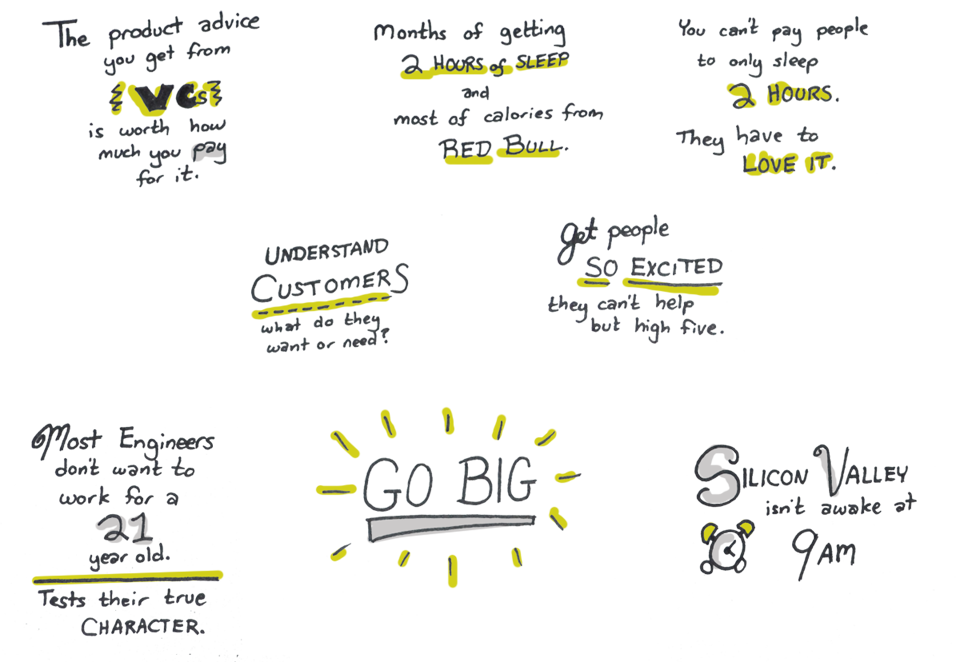 The product advice
you get from
VCs
is worth how
much you pay
for it.
Months of getting
2 HOURS of SLEEP
and
most of calories from
RED BULL.
You can't pay people
to only sleep
2 HOURS.
They have to
LOVE IT.
UNDERSTAND
CUSTOMERS
what do they
want or need?
get people
SO EXCITED
they can't help
but high five.
Most Engineers
don't want to
work for a
21
year old.
Tests their true
CHARACTER.
GO BIG
SILICON VALLEY
isn't awake at
9AM